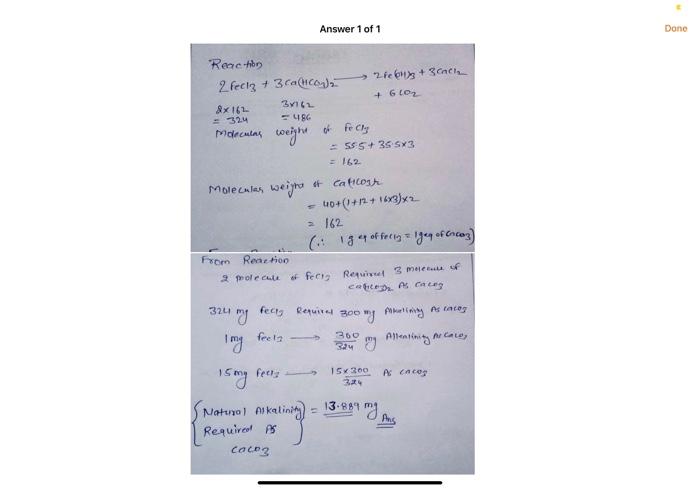 Answer 1 of 1
Done
Reaction
2 Fecl3 + 3 Ca(HCO3)2 → 2Fe(OH)3 + 3Cacl2
+ 6CO2
2x162 3x162
= 324 = 486
Molecular weight of FeCl3
= 55.5 + 35.5x3
= 162
Molecular weight of Ca(HCO3)2
= 40+(1+12+16x3)x2
= 162
(∴ 1 g eq of fecl3 = 1 geq of CaCO3)
From Reaction
2 molecule of feCl3 Required 3 molecule of
Ca(HCO3)2 As CaCO3
324 mg fecl3 Required 300 mg Alkalinity As CaCO3
1mg fecl3 → 300/324 mg Alkalinity As CaCO3
15mg fecl3 → 15x300/324 As CaCO3
{Natural Alkalinity Required As CaCO3} = 13.889 mg
Ans